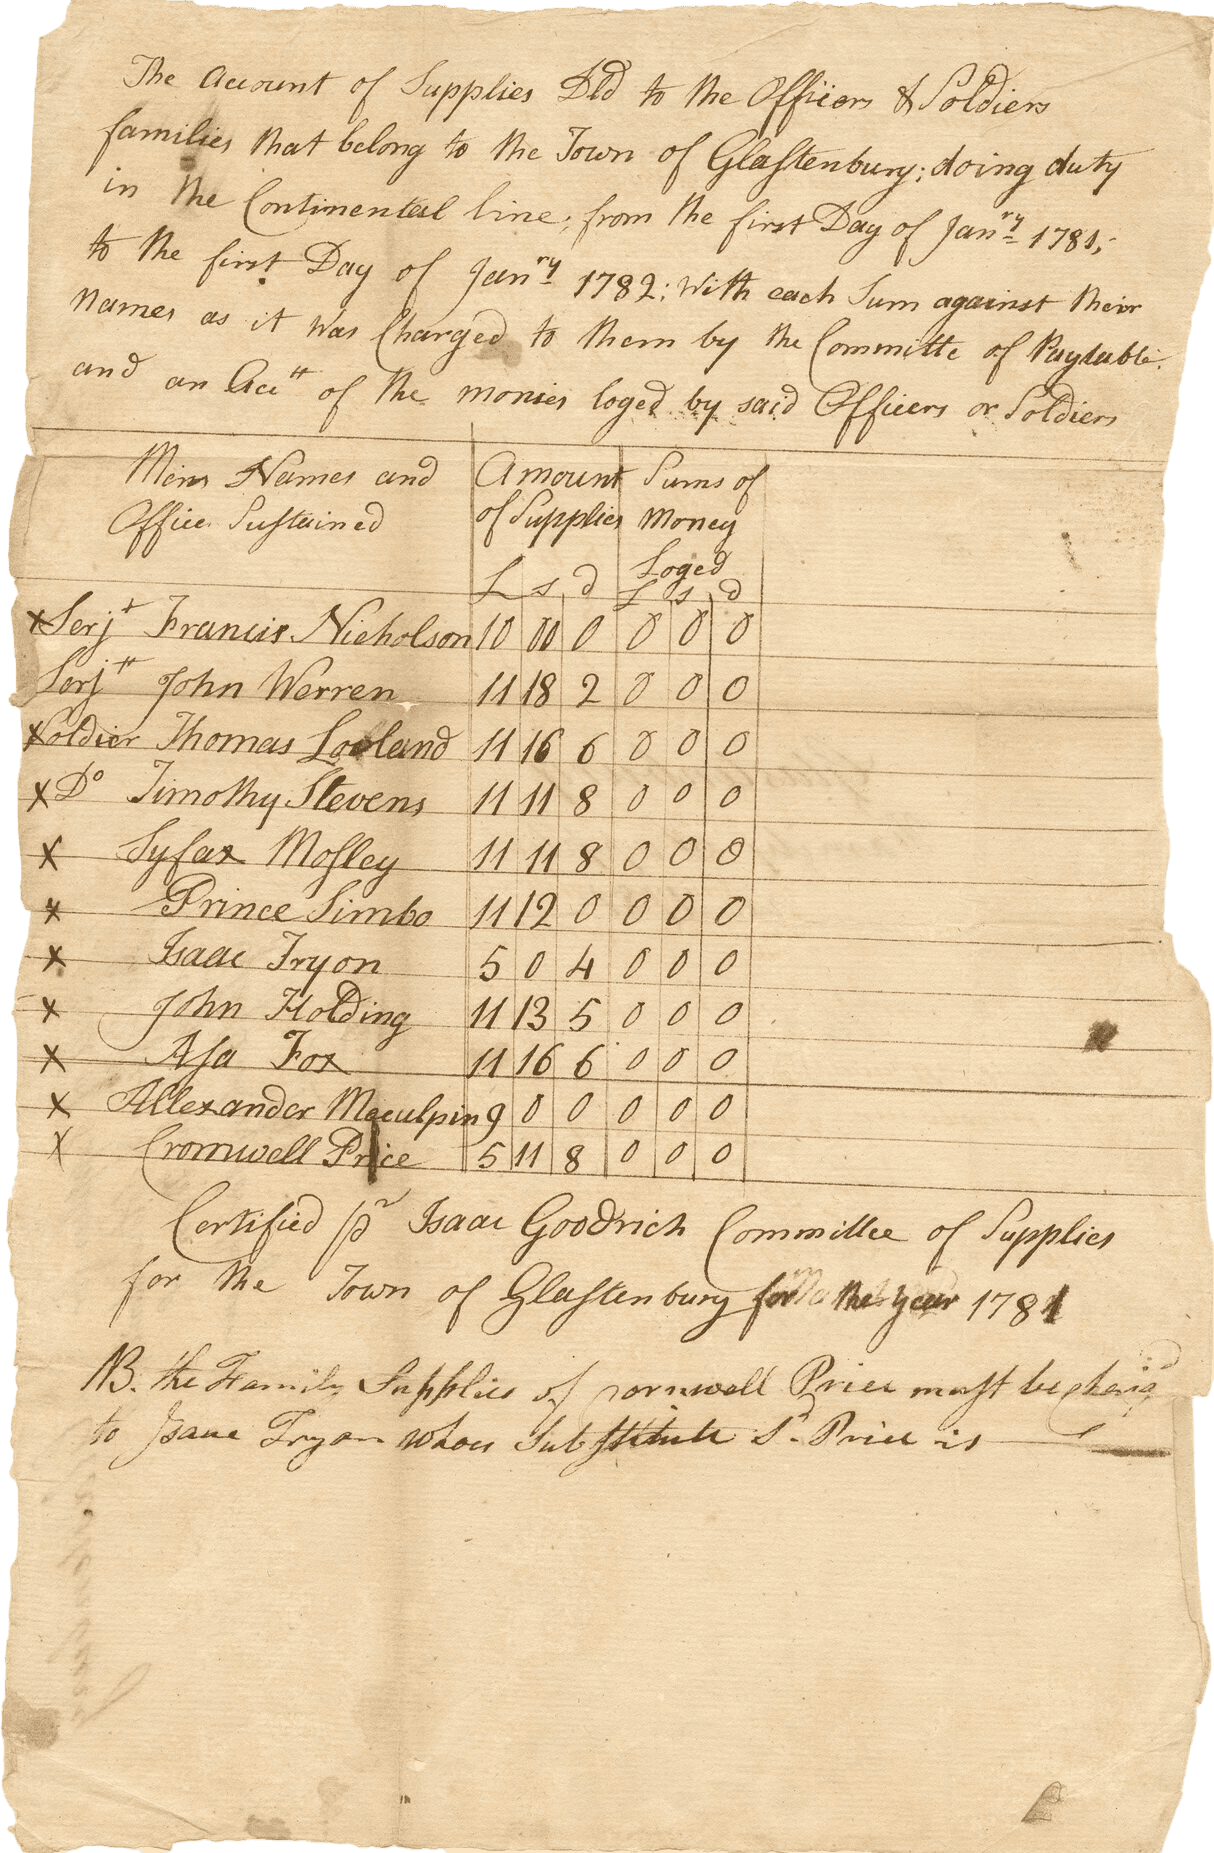 The Account of Supplies Dld to the Officers & Soldiers
families that belong to the Town of Glastenbury; doing duty
in the Continental line; from the first Day of Janry 1781;
to the first Day of Janry 1782; with each Sum against their
names as it was Charged to them by the Committe of Paytable.
and an Acctt of the monies loged by said Officers or Soldiers
Mens Names and Amount Sums of
Office Sustained of Supplies Money
Loged
£ s d £ s d
x Serjt Francis Nicholson 10 00 0 0 0 0
Serjtt John Werren 11 18 2 0 0 0
x Soldier Thomas Loveland 11 16 6 0 0 0
x Do Timothy Stevens 11 11 8 0 0 0
x Syfax Mosley 11 11 8 0 0 0
x Prince Simbo 11 12 0 0 0 0
x Isaac Tryon 5 0 4 0 0 0
x John Holding 11 13 5 0 0 0
x Asa Fox 11 16 6 0 0 0
x Allexander Maculpin 9 0 0 0 0 0
x Cromwell Price 5 11 8 0 0 0
Certified pr Isaac Goodrich Committee of Supplies
for the Town of Glastenbury for the year 1781
NB. the Family Supplies of Price must be
to Isaac Tryon whoes Substitute Sd Price is